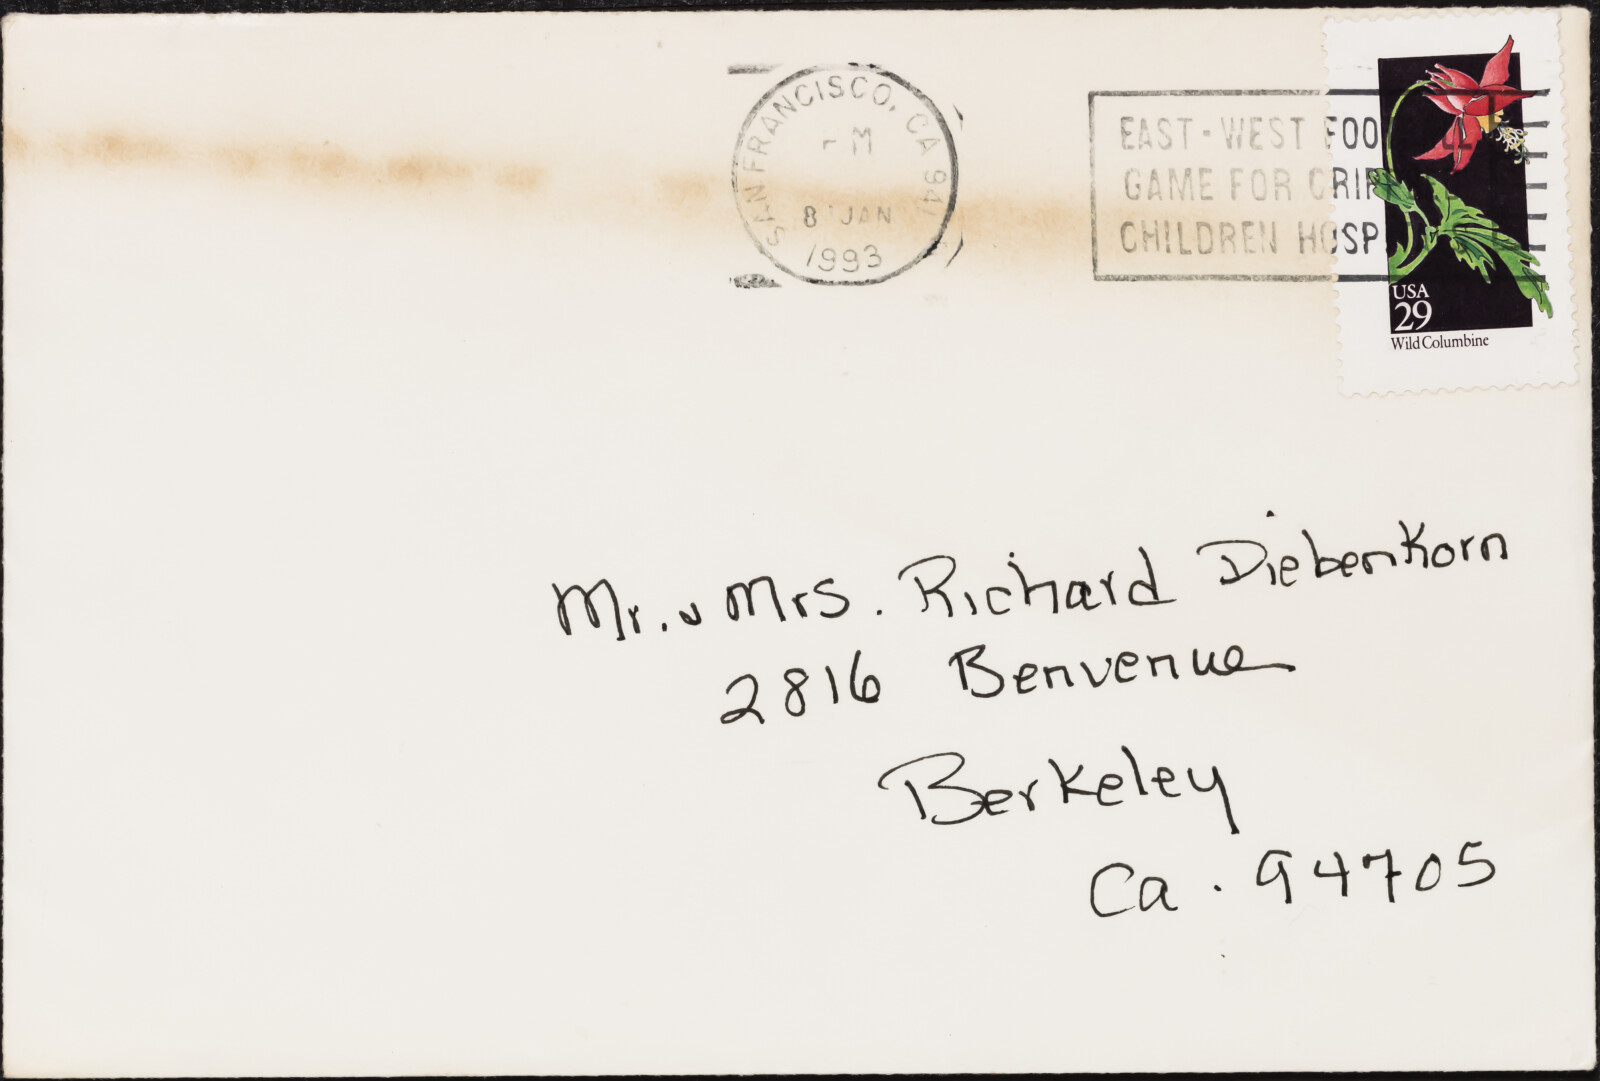 SAN FRANCISCO, CA 94
PM
8 JAN
1993
EAST-WEST FOO
GAME FOR CRIP
CHILDREN HOSP
USA
29
Wild Columbine
Mr. & Mrs. Richard Diebenkorn
2816 Benvenue
Berkeley
Ca. 94705